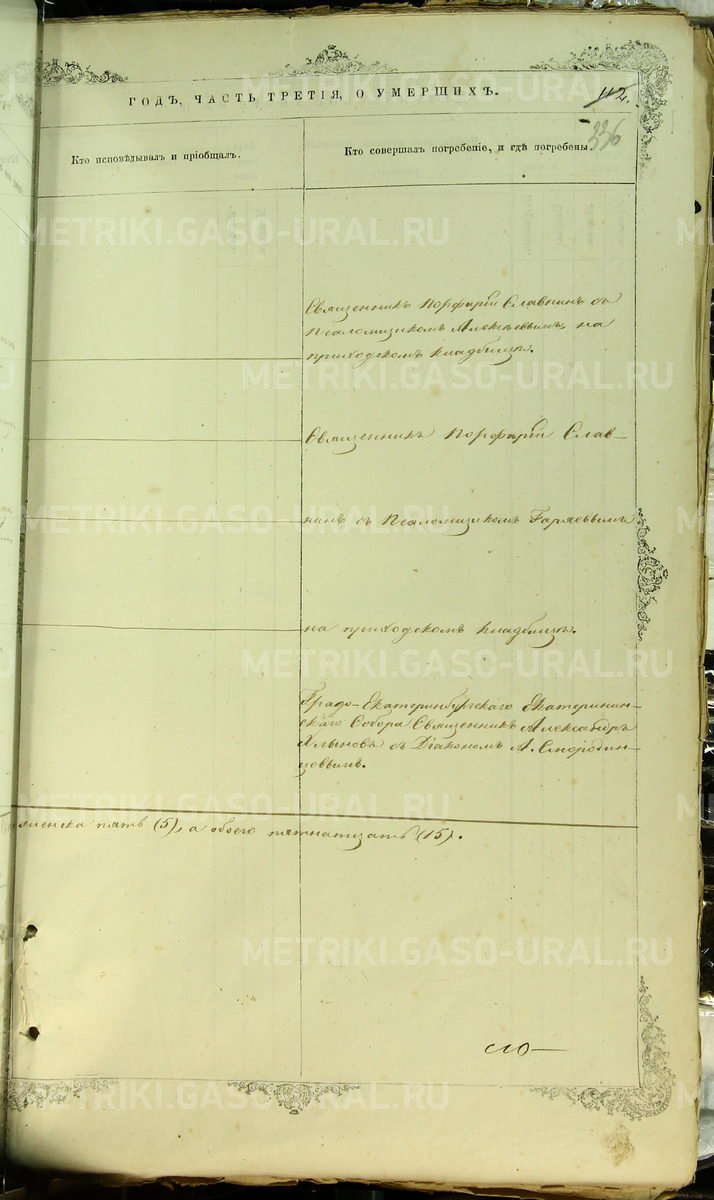 ГОДЪ, ЧАСТЬ ТРЕТІЯ, О УМЕРШИХЪ.
112.
336
Кто исповѣдывалъ и пріобщалъ.
Кто совершалъ погребеніе, и гдѣ погребены.
METRIKI.GASO-URAL.RU
Священникъ Порфирій Славнинъ съ
Псаломщикомъ Алексѣевымъ, на
приходскомъ кладбищѣ.
Священникъ Порфирій Слав-
нинъ съ Псаломщикомъ Гаряевымъ
на приходскомъ кладбищѣ.
Градо-Екатеринбургскаго Екатеринин-
скаго Собора Священникъ Александръ
Хлыновъ съ Діакономъ А. Смородин-
цовымъ.
женска пять (5), а обоего пятнатцать (15).